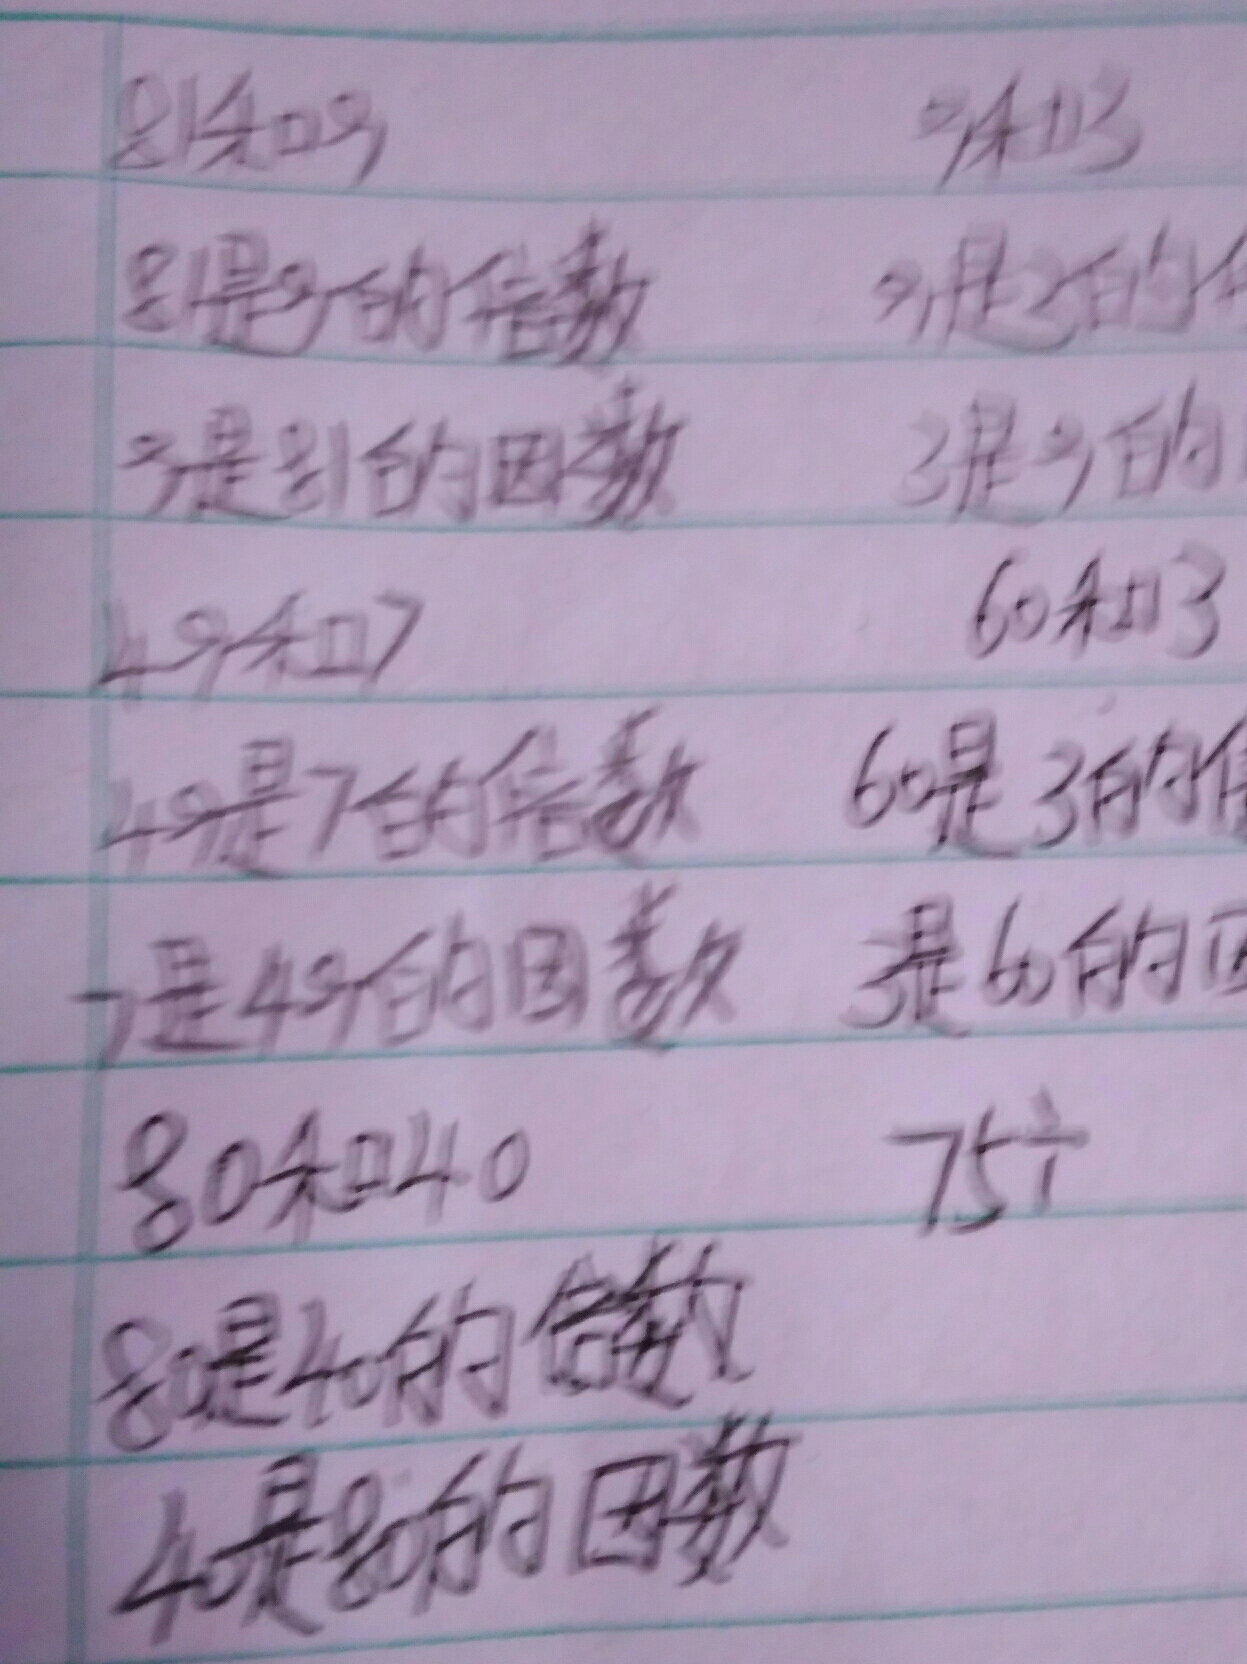 81和9 9和3
81是9的倍数 9是3的
9是81的因数 3是9的
49和7 60和3
49是7的倍数 60是3的倍
7是49的因数 3是60的因
80和40 75个
80是40的倍数
40是80的因数